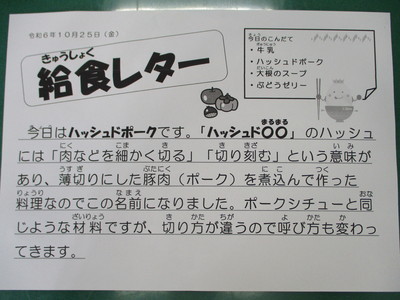 令和6年10月25日(金)
きゅうしょく
給食レター
今日のこんだて
・牛乳
・ハッシュドポーク
・大根のスープ
・ぶどうゼリー
今日はハッシュドポークです。「ハッシュド〇〇」のハッシュ
には「肉などを細かく切る」「切り刻む」という意味が
あり、薄切りにした豚肉(ポーク)を煮込んで作った
料理なのでこの名前になりました。ポークシチューと同
じような材料ですが、切り方が違うので呼び方も変わっ
てきます。